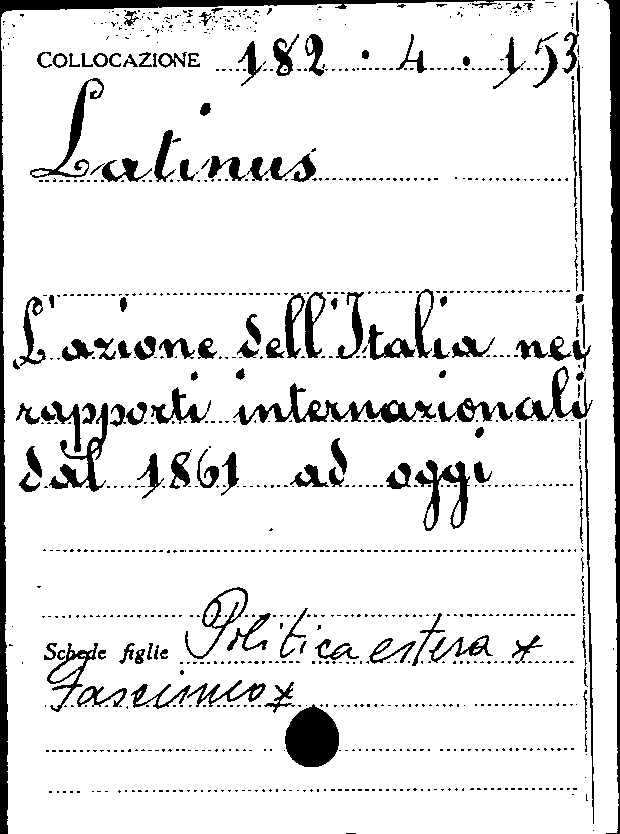 COLLOCAZIONE 182 · 4 · 153
Latinus
L'azione dell'Italia nei
rapporti internazionali
dal 1861 ad oggi
Schede figlie Politica estera *
Fascismo *